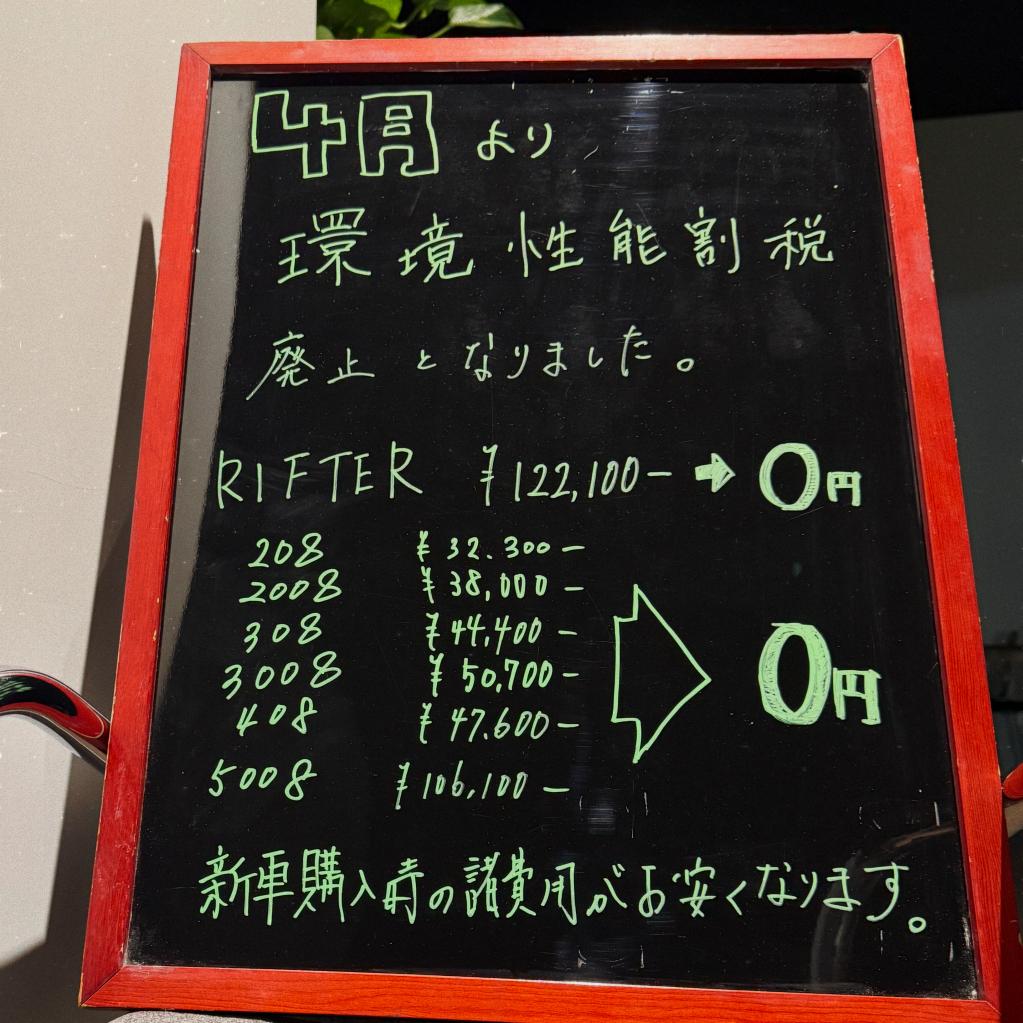 4月より
環境性能割税
廃止となりました。
RIFTER ¥122,100− → 0円
208 ¥32.300−
2008 ¥38,000−
308 ¥44,400−
3008 ¥50,700− 0円
408 ¥47.600−
5008 ¥106,100−
新車購入時の諸費用がお安くなります。